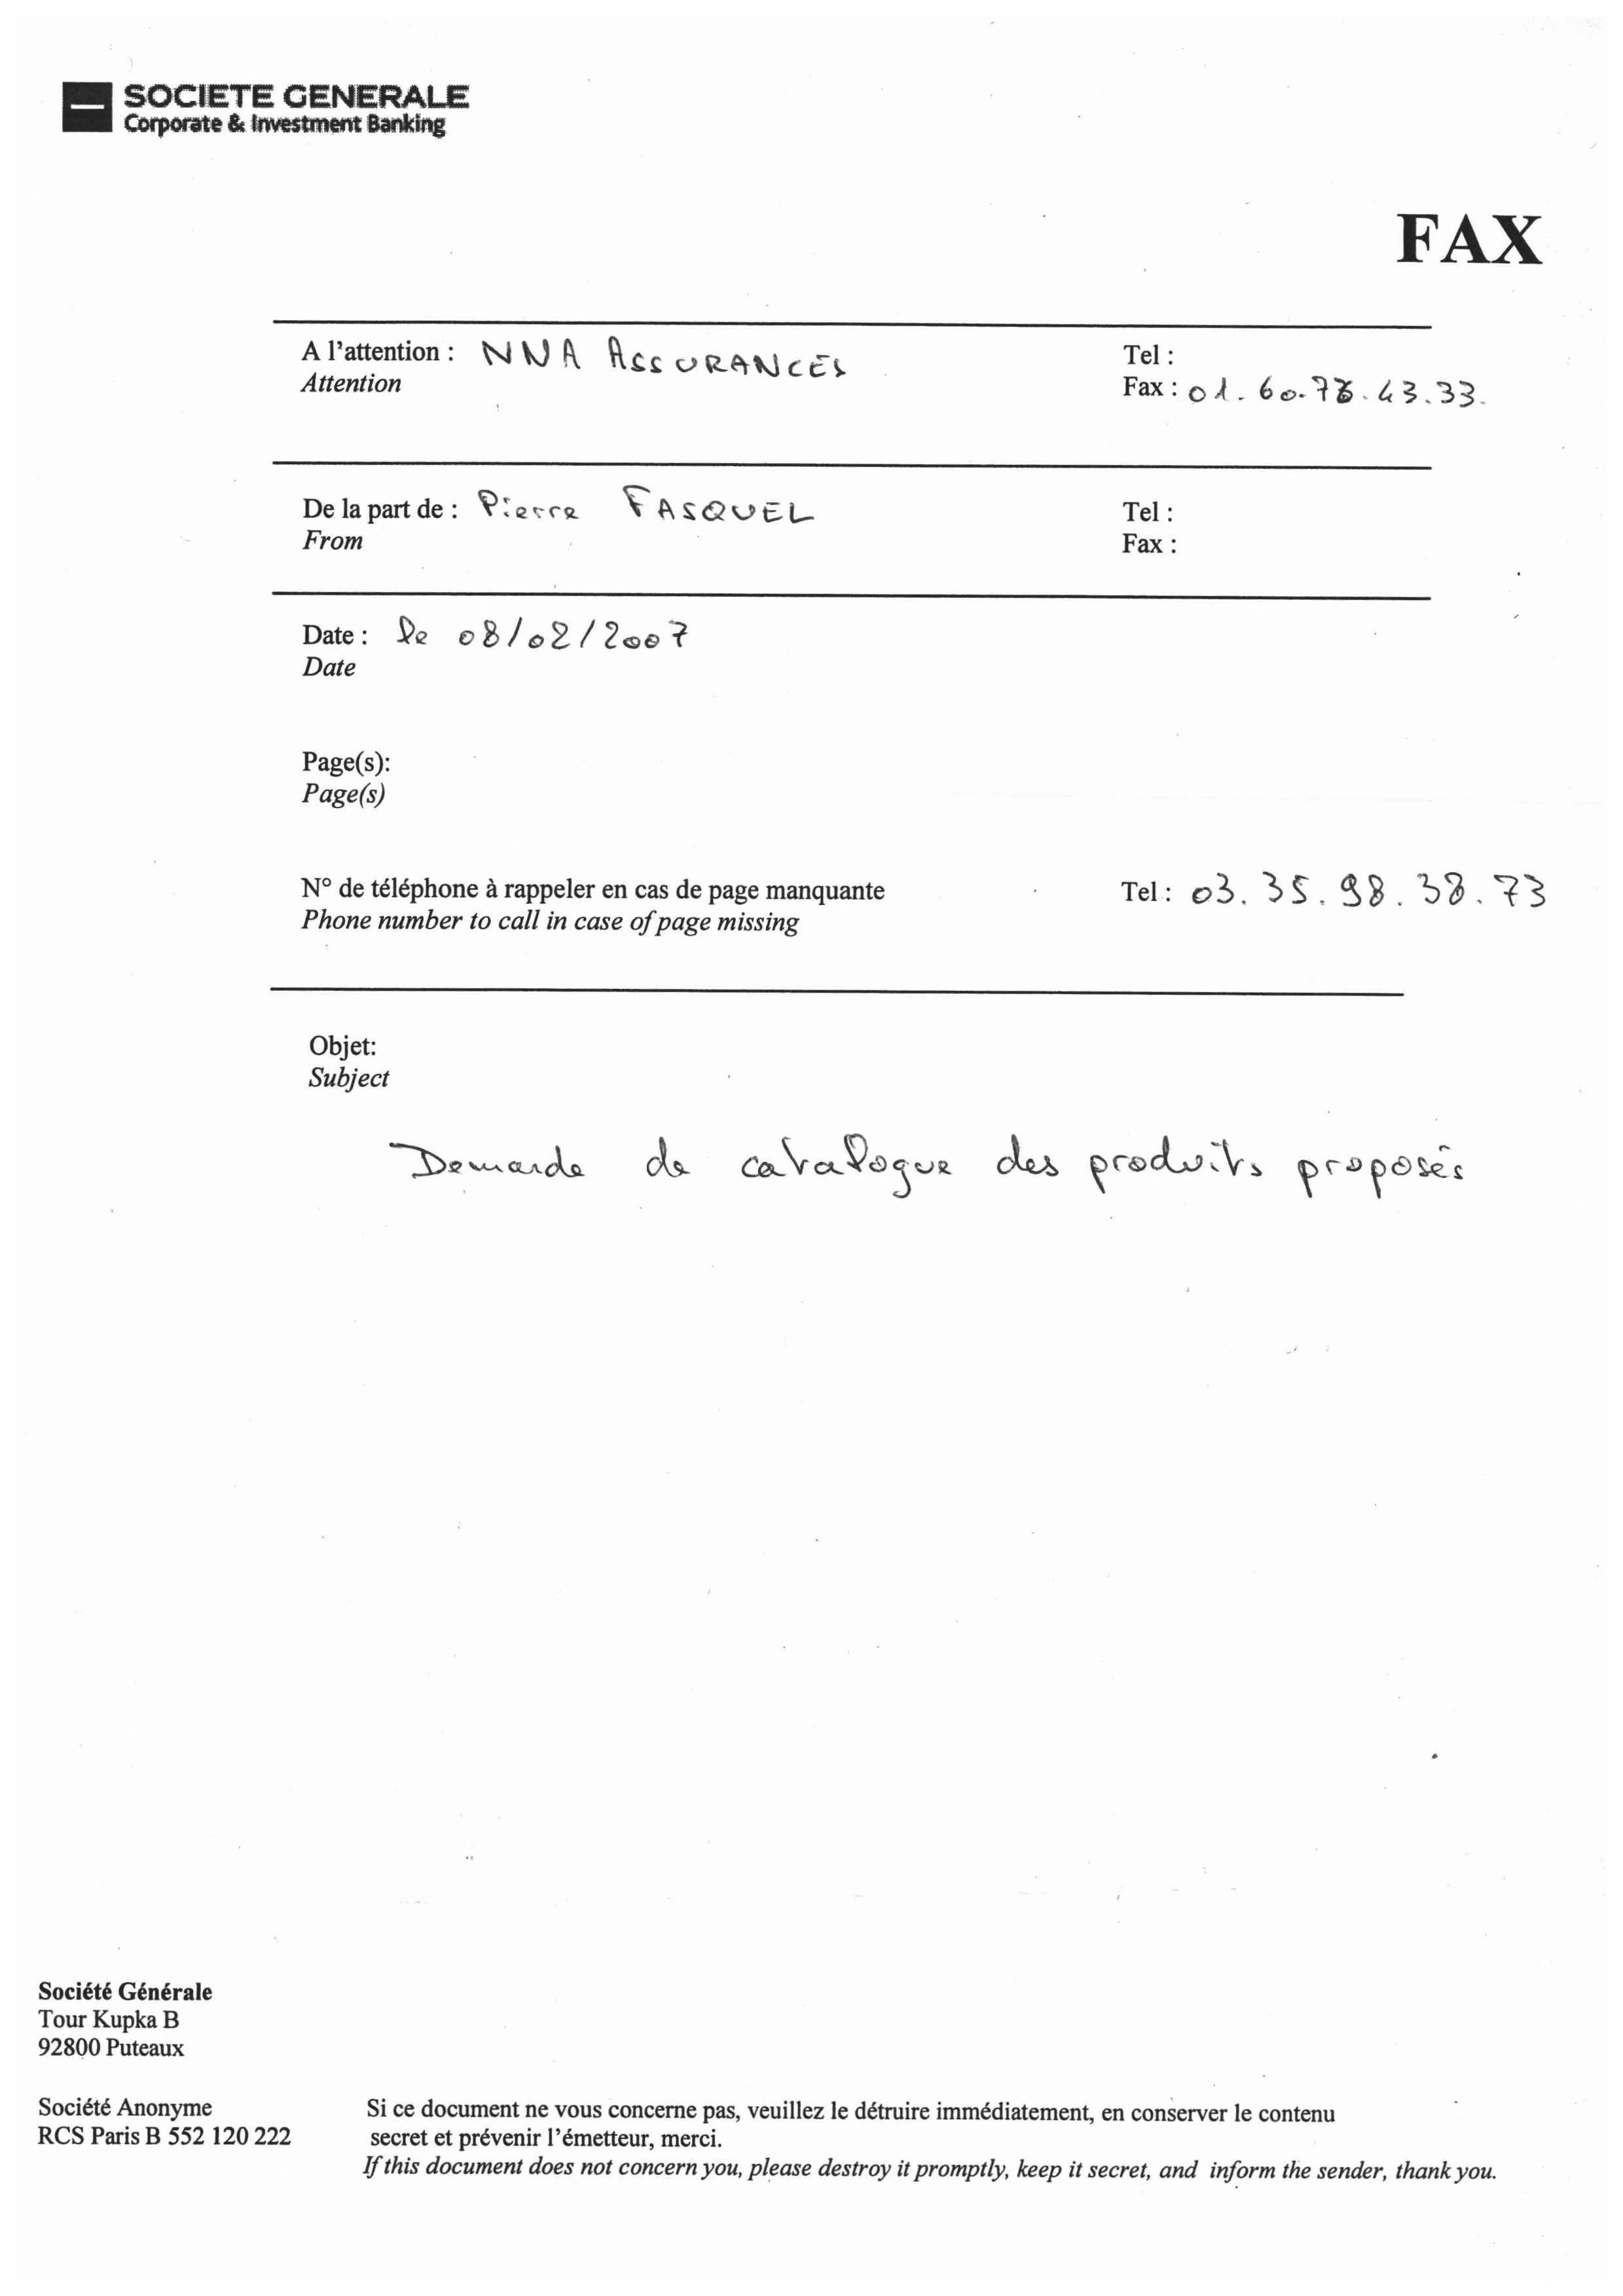 SOCIETE GENERALE
Corporate & Investment Banking
FAX
A l'attention : NNA ASSURANCES
Attention
Tel :
Fax : 01.60.78.43.33.
De la part de : Pierre FASQUEL
From
Tel :
Fax :
Date : le 08/02/2007
Date
Page(s):
Page(s)
N° de téléphone à rappeler en cas de page manquante
Phone number to call in case of page missing
Tel : 03.35.98.38.73
Objet:
Subject
Demande de catalogue des produits proposés
Société Générale
Tour Kupka B
92800 Puteaux
Société Anonyme
RCS Paris B 552 120 222
Si ce document ne vous concerne pas, veuillez le détruire immédiatement, en conserver le contenu
secret et prévenir l'émetteur, merci.
If this document does not concern you, please destroy it promptly, keep it secret, and inform the sender, thank you.